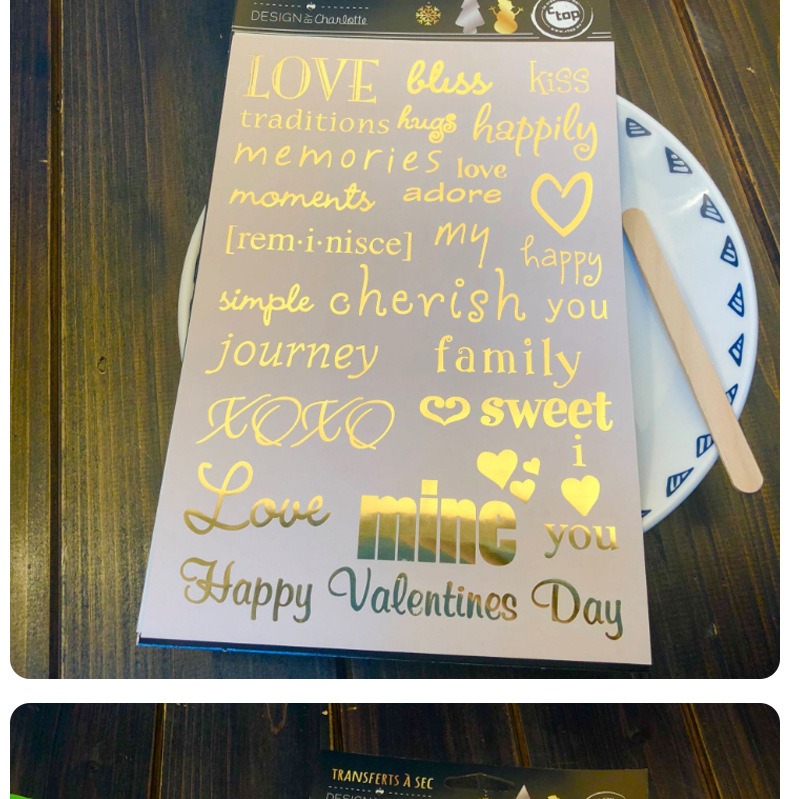 DESIGN BY Charlotte
LOVE bliss kiss
traditions hugs happily
memories love
moments adore
[rem·i·nisce] my happy
simple cherish you
journey family
XOXO sweet
i
Love mine you
Happy Valentines Day
TRANSFERTS À SEC